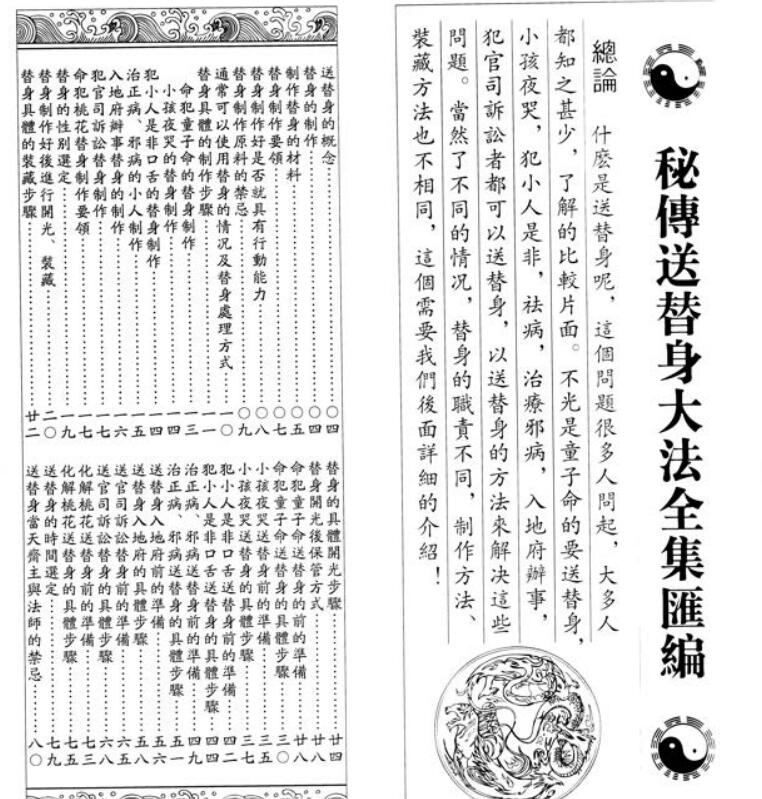 秘傳送替身大法全集匯編
總論 什麽是送替身呢，這個問題很多人問起，大多人
都知之甚少，了解的比較片面。不光是童子命的要送替身，
小孩夜哭，犯小人是非，祛病，治療邪病，入地府辦事，
犯官司訴訟者都可以送替身，以送替身的方法來解決這些
問題。當然了不同的情况，替身的職責不同，制作方法、
裝藏方法也不相同，這個需要我們後面詳細的介紹！
送替身的概念……〇四
替身的制作……〇四
制作替身的材料……〇五
替身制作要領……〇七
替身制作好是否就具有行動能力……〇八
替身制作原料的禁忌……〇九
通常可以使用替身的情况及替身處理方式……一〇
替身具體的制作步驟……一一
命犯童子命的替身制作……一三
小孩夜哭的替身制作……一四
犯小人是非口舌的替身制作……一四
治正病、邪病的小人制作……一五
入地府辦事替身的制作……一六
犯官司訴訟替身制作……一七
命犯桃花替身制作要領……一七
替身的性别選定……一九
替身制作好後進行開光、裝藏……二〇
替身具體的裝藏步驟……廿二
替身的具體開光步驟……廿四
替身開光後保管方式……廿八
命犯童子命送替身的前的準備……廿八
命犯童子命送替身的具體步驟……三〇
小孩夜哭送替身前的準備……三五
小孩夜哭送替身的具體步驟……三七
犯小人是非口舌送替身前的準備……四二
犯小人是非口舌送替身的具體步驟……四四
治正病、邪病送替身前的準備……四九
治正病、邪病送替身的具體步驟……五一
送替身入地府前的準備……五六
送替身入地府的具體步驟……五八
送官司訴訟替身前的準備……六五
送官司訴訟替身的具體步驟……六五
化解桃花送替身前的準備……七三
化解桃花送替身的具體步驟……七五
送替身的時間選定……七九
送替身當天齋主與法師的禁忌……八〇